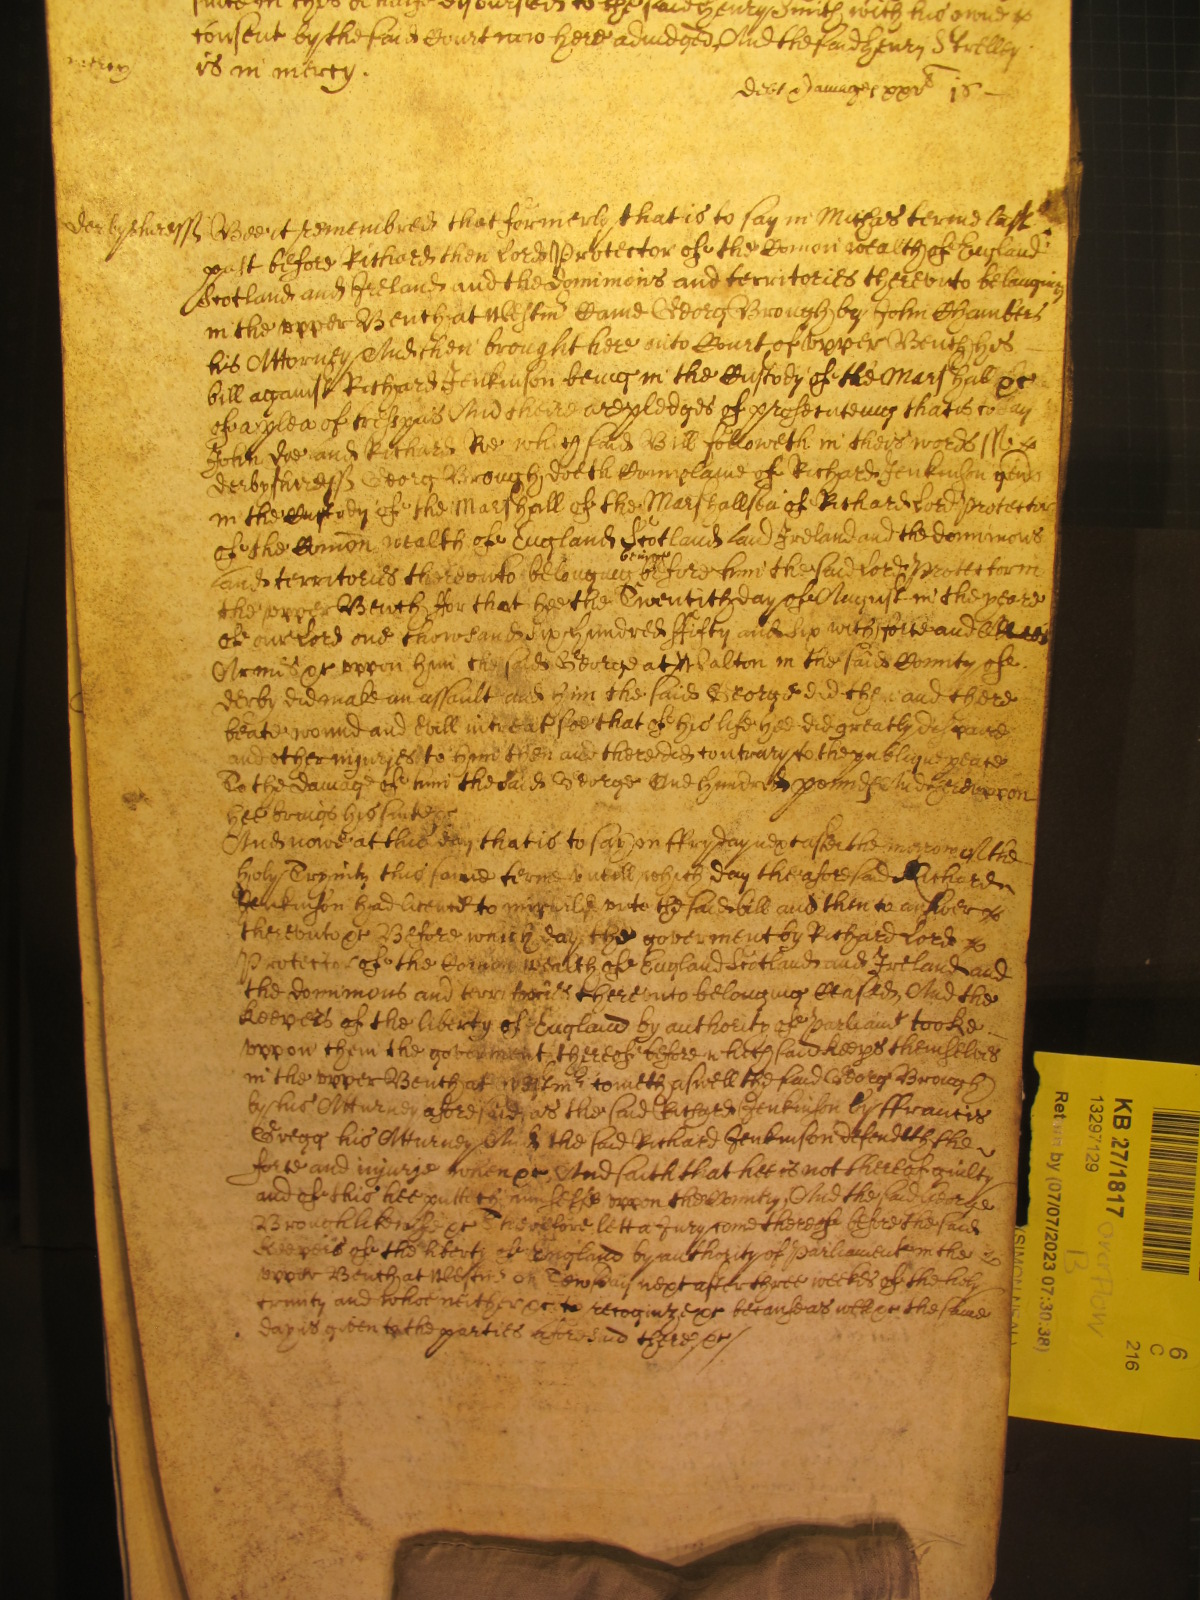 suite in this behalfe disbursed to the said Henry Smith with his owne
consent by the said Court now here adiudged And the said Henry Strelley
mercy is in mercy.
debt & damages xxvs is
derbyshire ss Bee it remembred that formerly that is to say in Michas terme last
past before Richard then Lord Protector of the Comon wealth of England
Scotland and Ireland and the dominions and territories therevnto belonging
in the vpper Bench at Westm Came Georg Brough by John Chambers
his Attorney And then brought here into Court of vpper Bench his
bill against Richard Jenkinson being in the Custody of the Marshall &c
of a plea of trespas And theire are pledges of prosecuteing that is to say
John Doe and Richard Roe which said Bill followeth in theis words ss
derbyshire ss Georg Brough doeth Complaine of Richard Jenkinson gent
in the Custody of the Marshall of the Marshallsea of Richard Lord Protector
of the Comon wealth of England Scotland and Ireland and the dominions
and territories therevnto belonging being before him the said Lord Protector in
the vpper Bench ffor that hee the Twentith day of August in the yeare
of our Lord one thowsand Six hundred ffifty and Six with force and
Armes &c vppon him the said George at Walton in the said County of
derby did make an assault and him the said George did then and there
beate wound and evill intreat soe that of his life hee did greatly dispaire
and other iniuries to him then and there did contrary to the publique peace
To the damage of him the said George One hundred pounds And therevppon
hee brings his suite &c
And nowe at this day that is to say on ffryday next after the morrow of the
holy Trynity this same terme vntill which day the aforesaid Richard
Jenkinson had licence to imparle vnto the said bill and then to answer
therevnto &c Before which day the goverment by Richard Lord
Protector of the Comon wealth of England Scotland and Ireland and
the dominions and territories therevnto belonging Ceased And the
keepers of the liberty of England by authority of Parliamt tooke
vppon them the goverment thereof before which said keeps themselves
in the vpper Bench at westmr cometh aswell the said Georg Brough
by his Atturney aforesaid as the said Richard Jenkinson by ffrancis
Gregg his Atturney And the said Richard Jenkinson defendeth the
force and iniurye when &c And saith that hee is not thereof guilty
and of this hee putteth himselfe vppon the Country, And the said George
Brough likewise &c Therefore lett a Jury come thereof before the said
Keepers of the liberty of England by authority of Parliament in the
vpper Bench at Westmr on Tewsday next after three weekes of the holy
trinity and whoe neither &c to recognize &c because as well &c the same
day is given to the parties aforesaid there &c
KB 27/1817
13297129
Return by (07/07/2023 07:30:38)
overflow
B
6
C
216